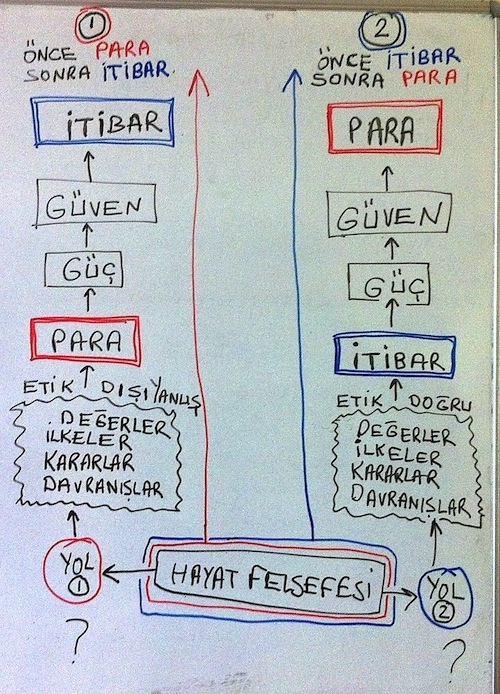 1
ÖNCE PARA
SONRA İTİBAR
İTİBAR
GÜVEN
GÜÇ
PARA
ETİK DIŞI YANLIŞ
DEĞERLER
İLKELER
KARARLAR
DAVRANIŞLAR
YOL
1
?
2
ÖNCE İTİBAR
SONRA PARA
PARA
GÜVEN
GÜÇ
İTİBAR
ETİK DOĞRU
DEĞERLER
İLKELER
KARARLAR
DAVRANIŞLAR
YOL
2
?
HAYAT FELSEFESİ